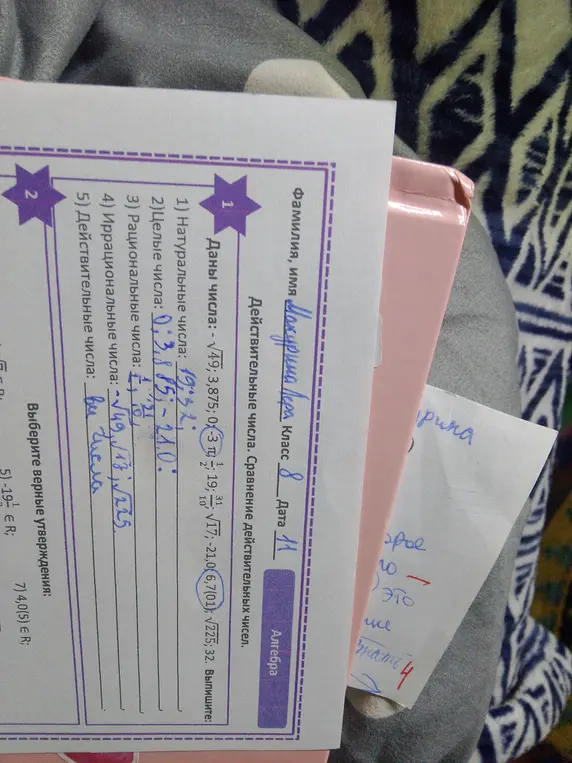 Фамилия, имя Макурина Лера Класс 8 Дата 11
Алгебра
Действительные числа. Сравнение действительных чисел.
1
Даны числа: - √49; 3,875; 0; -3 π; 1/2; 19; 31/10; √17; -21,0; 6,7(01); √225; 32. Выпишите:
1) Натуральные числа: 19; 32;
2) Целые числа: 0; 3,875; -21.0;
3) Рациональные числа:
4) Иррациональные числа: -√49, √13; √225
5) Действительные числа: все числа
2
Выберите верные утверждения:
5) -19
∈ R;
7) 4,0(5) ∈ R;
это
4